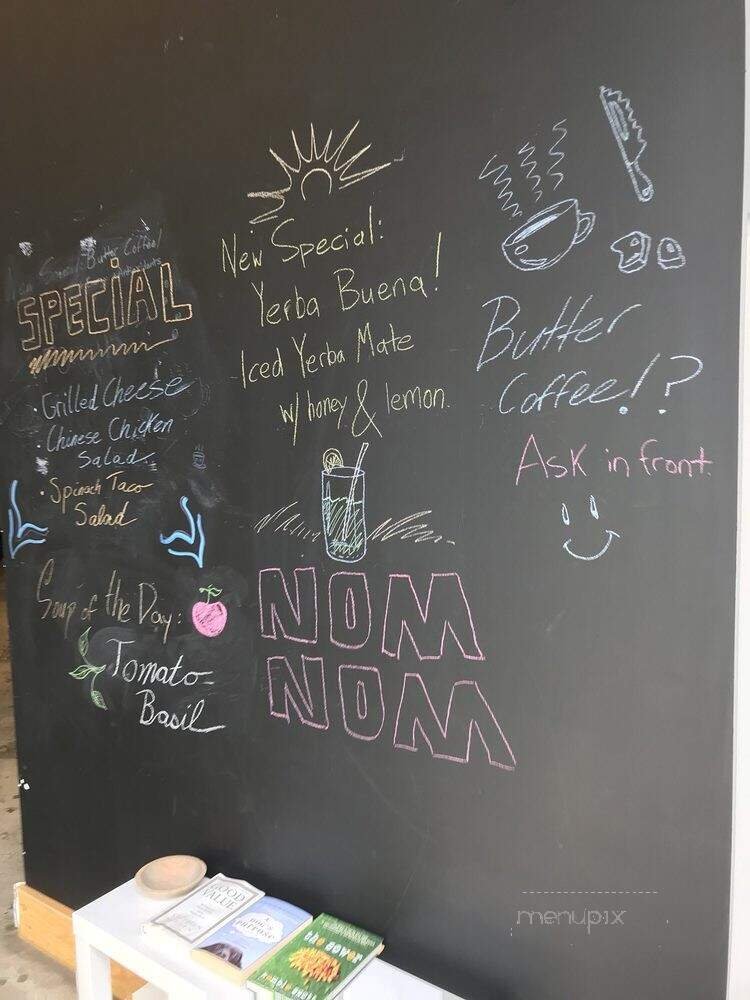 New Special: Butter Coffee!
SPECIAL
• Grilled Cheese
• Chinese Chicken
Salad
• Spinach Taco
Salad
Soup of the Day:
Tomato
Basil
New Special:
Yerba Buena!
Iced Yerba Mate
w/ honey & lemon.
NOM
NOM
Butter
Coffee!?
Ask in front.
GOOD
VALUE
a
DOG'S
purpose
the sower
menupix